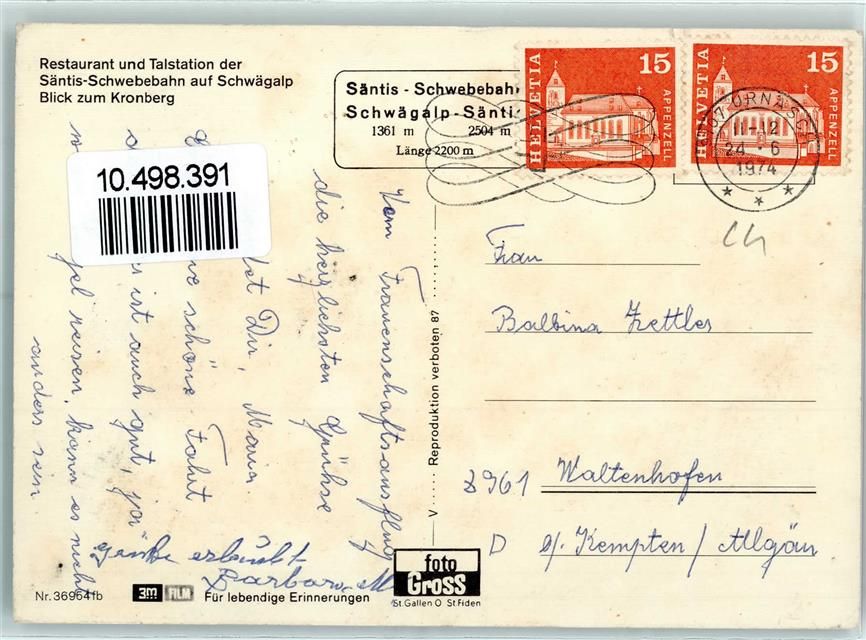 Restaurant und Talstation der
Säntis-Schwebebahn auf Schwägalp
Blick zum Kronberg
Säntis - Schwebebahn
Schwägalp - Säntis
1361 m 2504 m
Länge 2200 m
HELVETIA 15 APPENZELL
HELVETIA 15 APPENZELL
URNÄSCH
11-12
24 · 6
1974
10.498.391
Vom Frauenschaftsausflug
die herzlichsten Grüße
Dir, Maria
schöne Fahrt
ist auch gut, ja
reisen, kann es nicht
anders sein.
Barbara M
Frau
Balbina Zettler
8961 Waltenhofen
D b/ Kempten / Allgäu
V ..... Reproduktion verboten 87 .....
Nr. 36954fb
3M FILM Für lebendige Erinnerungen
foto
Gross
St.Gallen O St Fiden